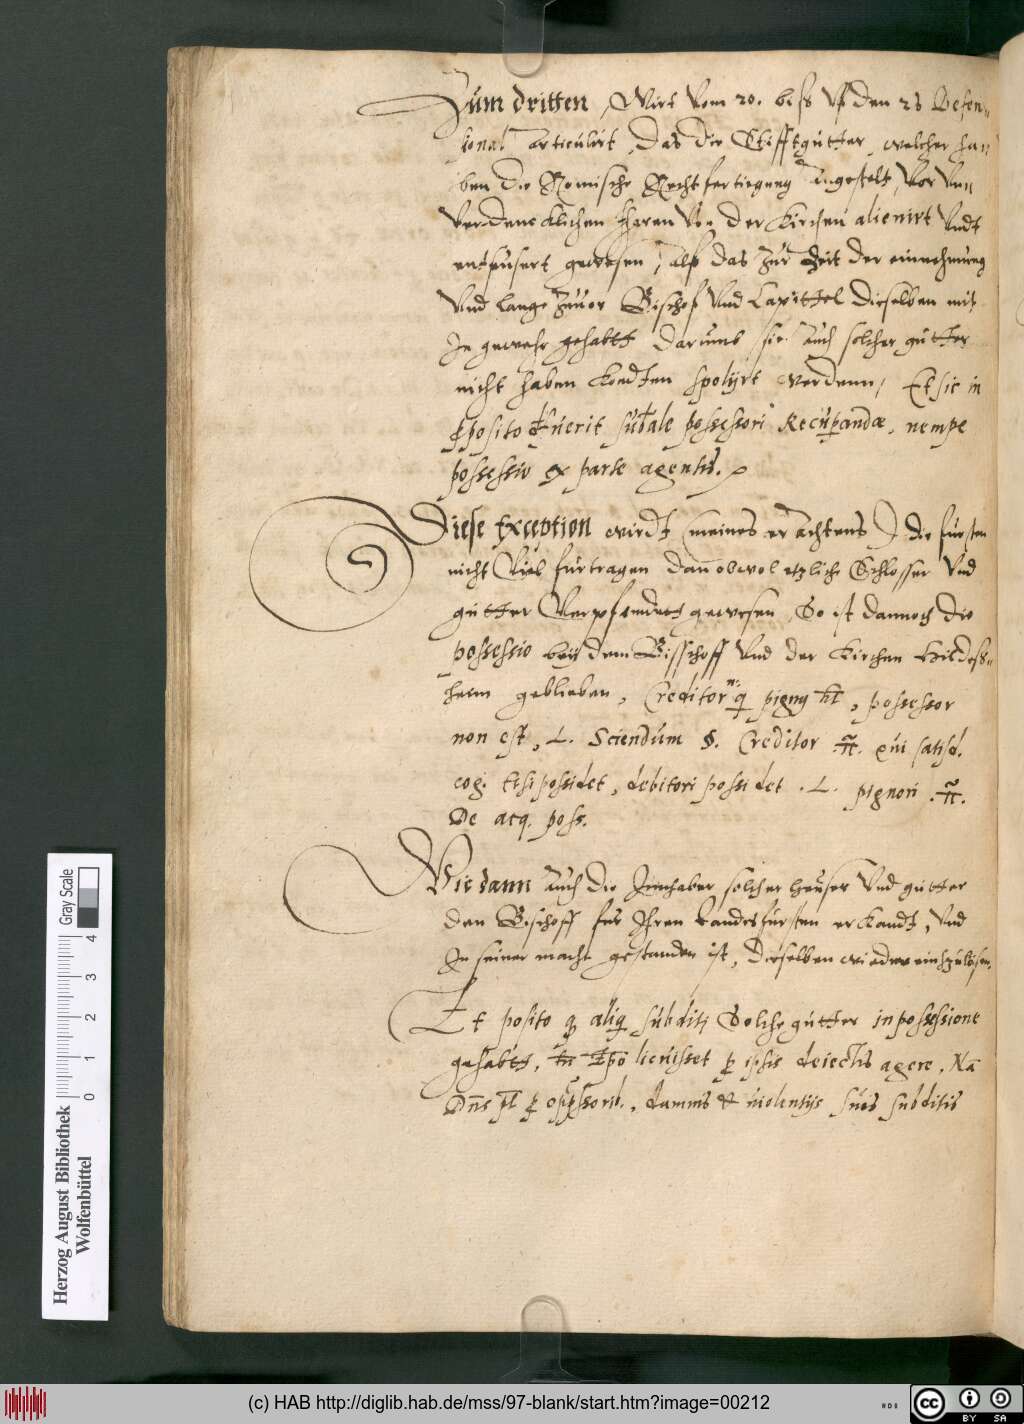 Zum dritten, Wirt vom 20. biß vf den 23 Defen-
sional articulirt, das die Stifftgütter, welcher hal
ben die Romische Rechtfertigung angestelt, vor vn
verdencklichen Jharen von der Kirchen alienirt vndt
enteusert gewesen, alß das zur Zeit der einnehmung
vnd lange zuuor Bischof vnd Capittel dieselben nit
In gewehr gehabtt darumb sie auch solcher gütter
nicht haben kondten spolijrt werdenn, Et sic in
pposito fuerit sublale possessori Recupandæ, nempe
possessio ex parte agentis.
Diese Exception wirdt (meines erachtens) die fürsten
nicht Viel fürtragen dan obwol etzliche Schlosser vnd
gütter Verpfendett gewesen, So ist dannoch die
possessio beij dem Bisschoff vnd der Kirchen Hildeß-
heim geblieben, Creditor q pigny ht, possessor
non est, L. Sciendum §. Creditor ff. qui satisd.
cog. Etsi possidet, debitori possidet. L. pignori ff.
De acq. poss.
Wie dann auch die Innhaber solcher heuser vnd gütter
den Bischoff für Ihren Landesfürsten erkandt, vnd
In seiner macht gestanden ist, dieselben wieder einzulösen.
Et posito q aliq subditi Solche gütter in possessione
gehabtt, tn Epo licuisset p ipsis deiectis agere, Na
Dns pt p oppssorib., damnis et violentijs suis subditis
Herzog August Bibliothek
Wolfenbüttel
0 1 2 3 4
Gray Scale
(c) HAB http://diglib.hab.de/mss/97-blank/start.htm?image=00212
cc BY SA